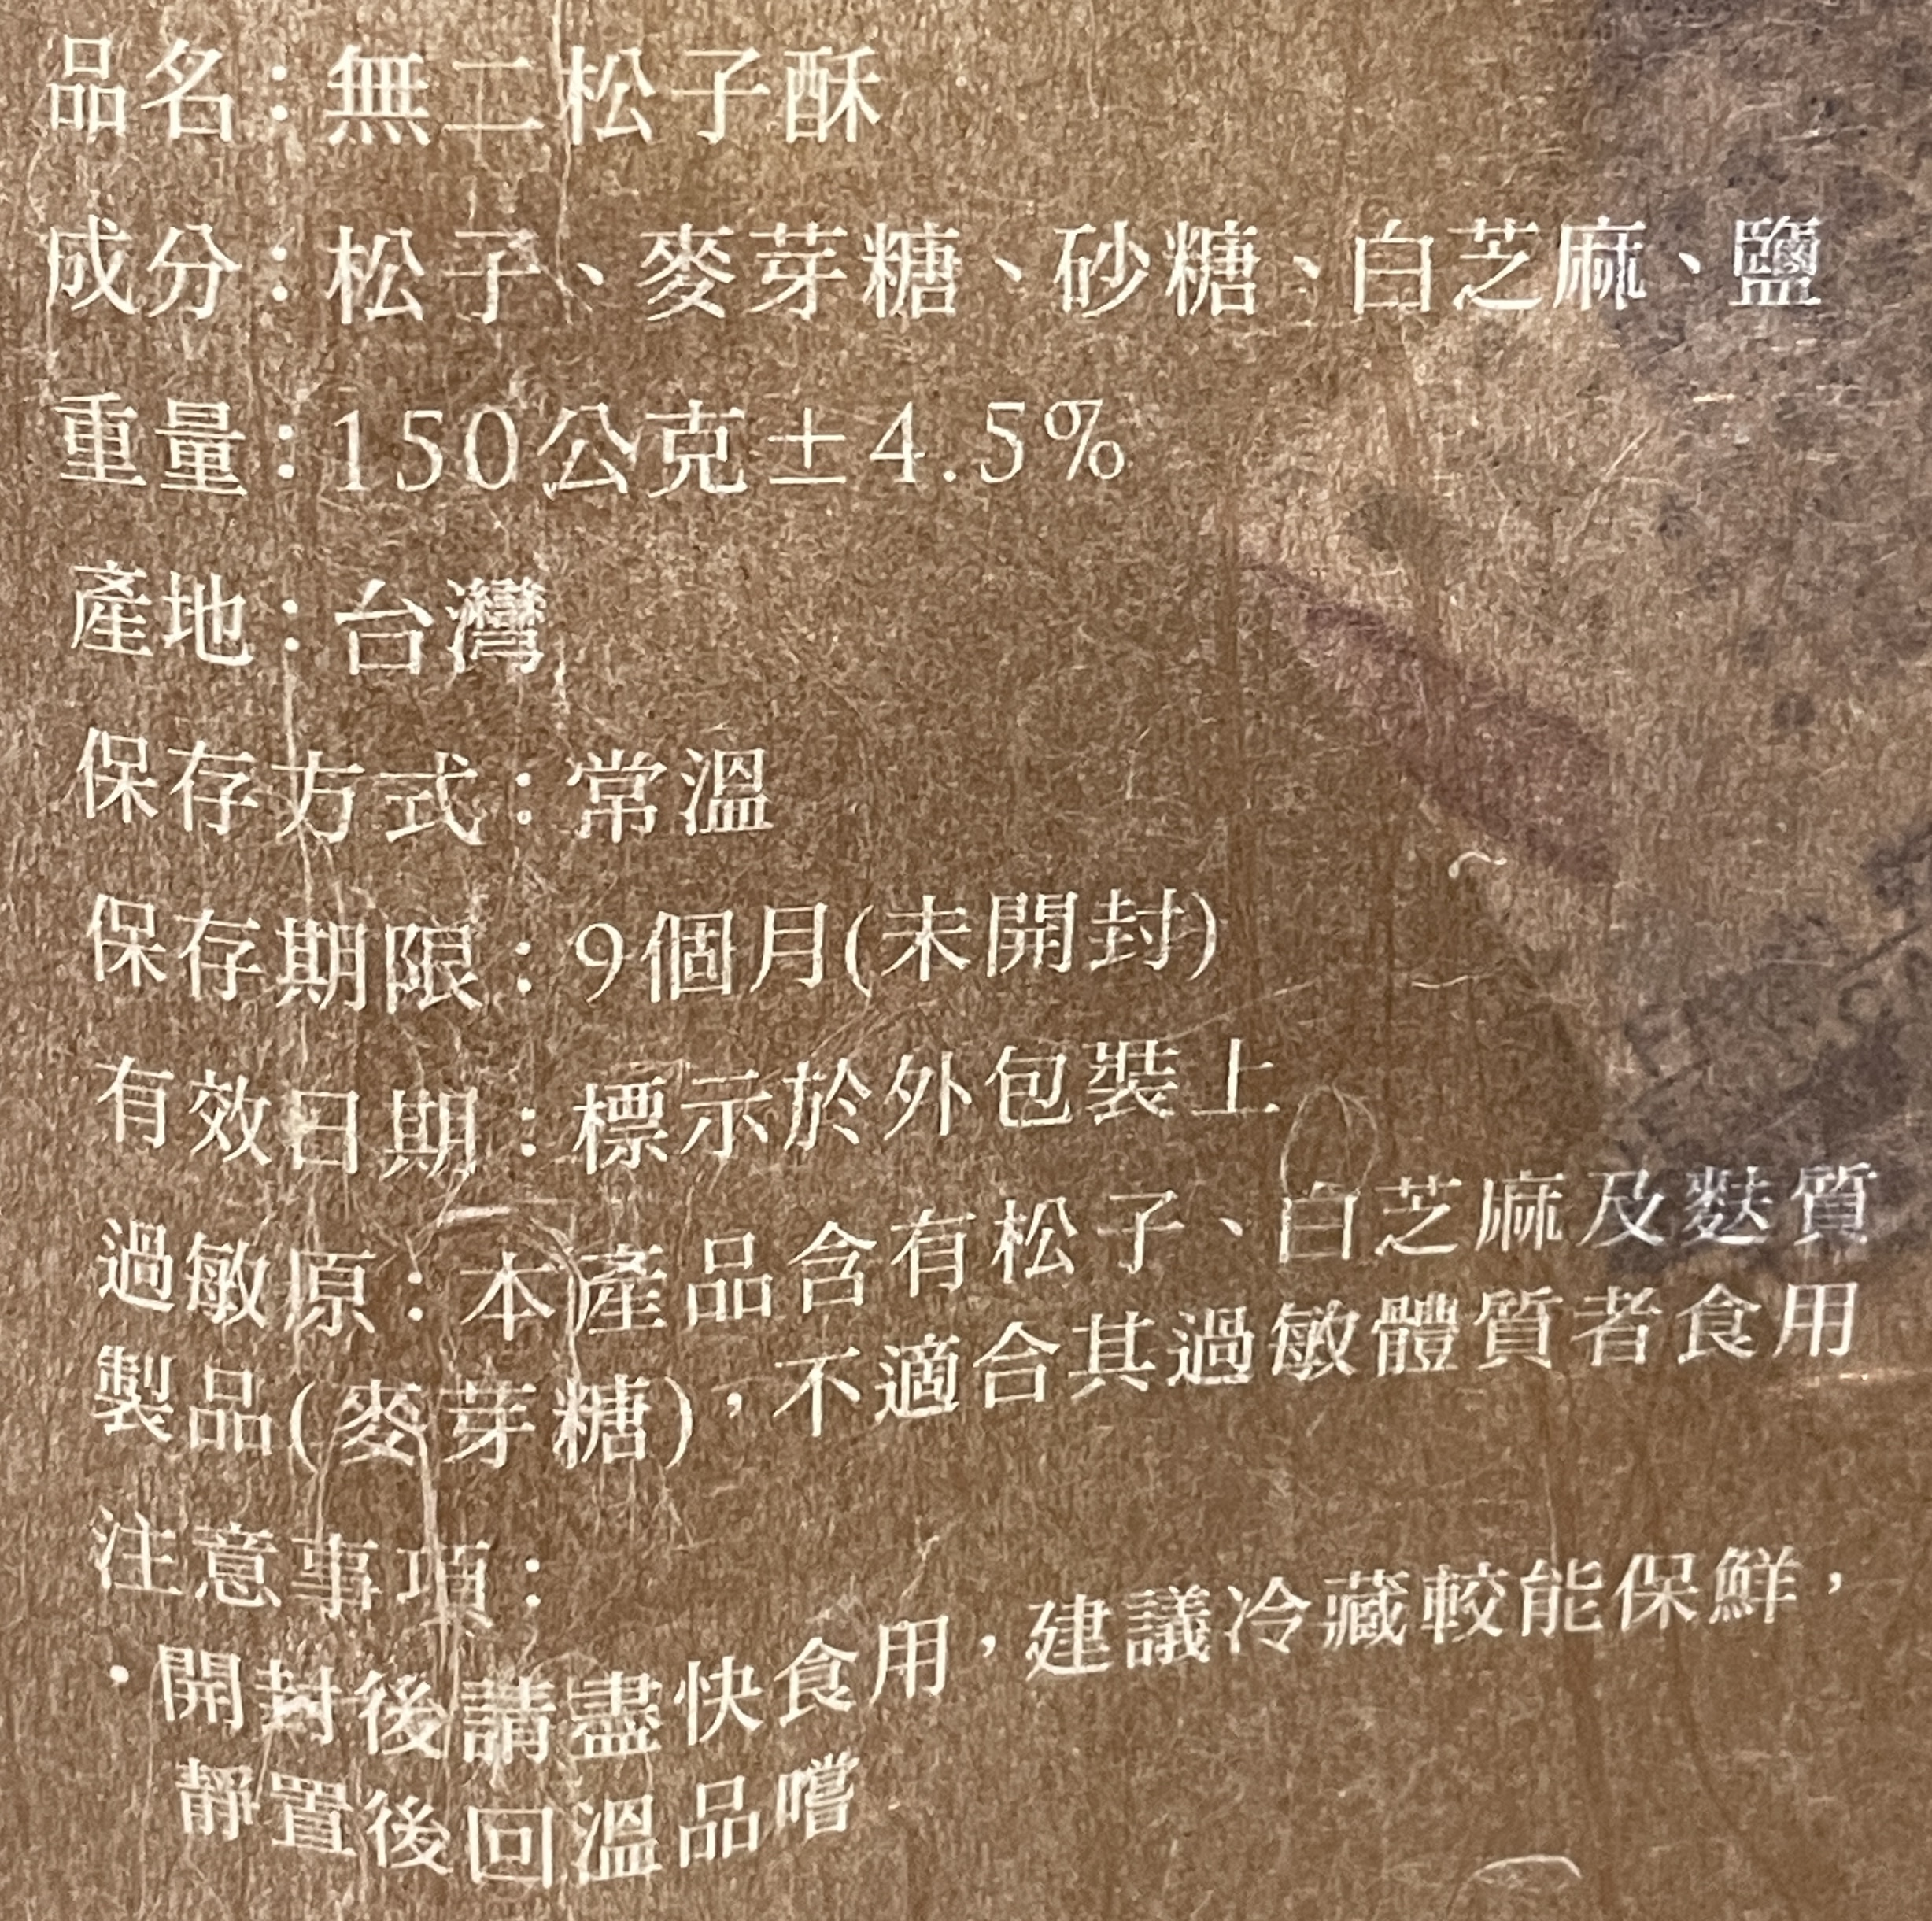 品名：無二松子酥
成分：松子、麥芽糖、砂糖、白芝麻、鹽
重量：150公克±4.5%
產地：台灣
保存方式：常溫
保存期限：9個月(未開封)
有效日期：標示於外包裝上
過敏原：本產品含有松子、白芝麻及麩質
製品(麥芽糖)，不適合其過敏體質者食用
注意事項：
・開封後請盡快食用，建議冷藏較能保鮮，
靜置後回溫品嚐